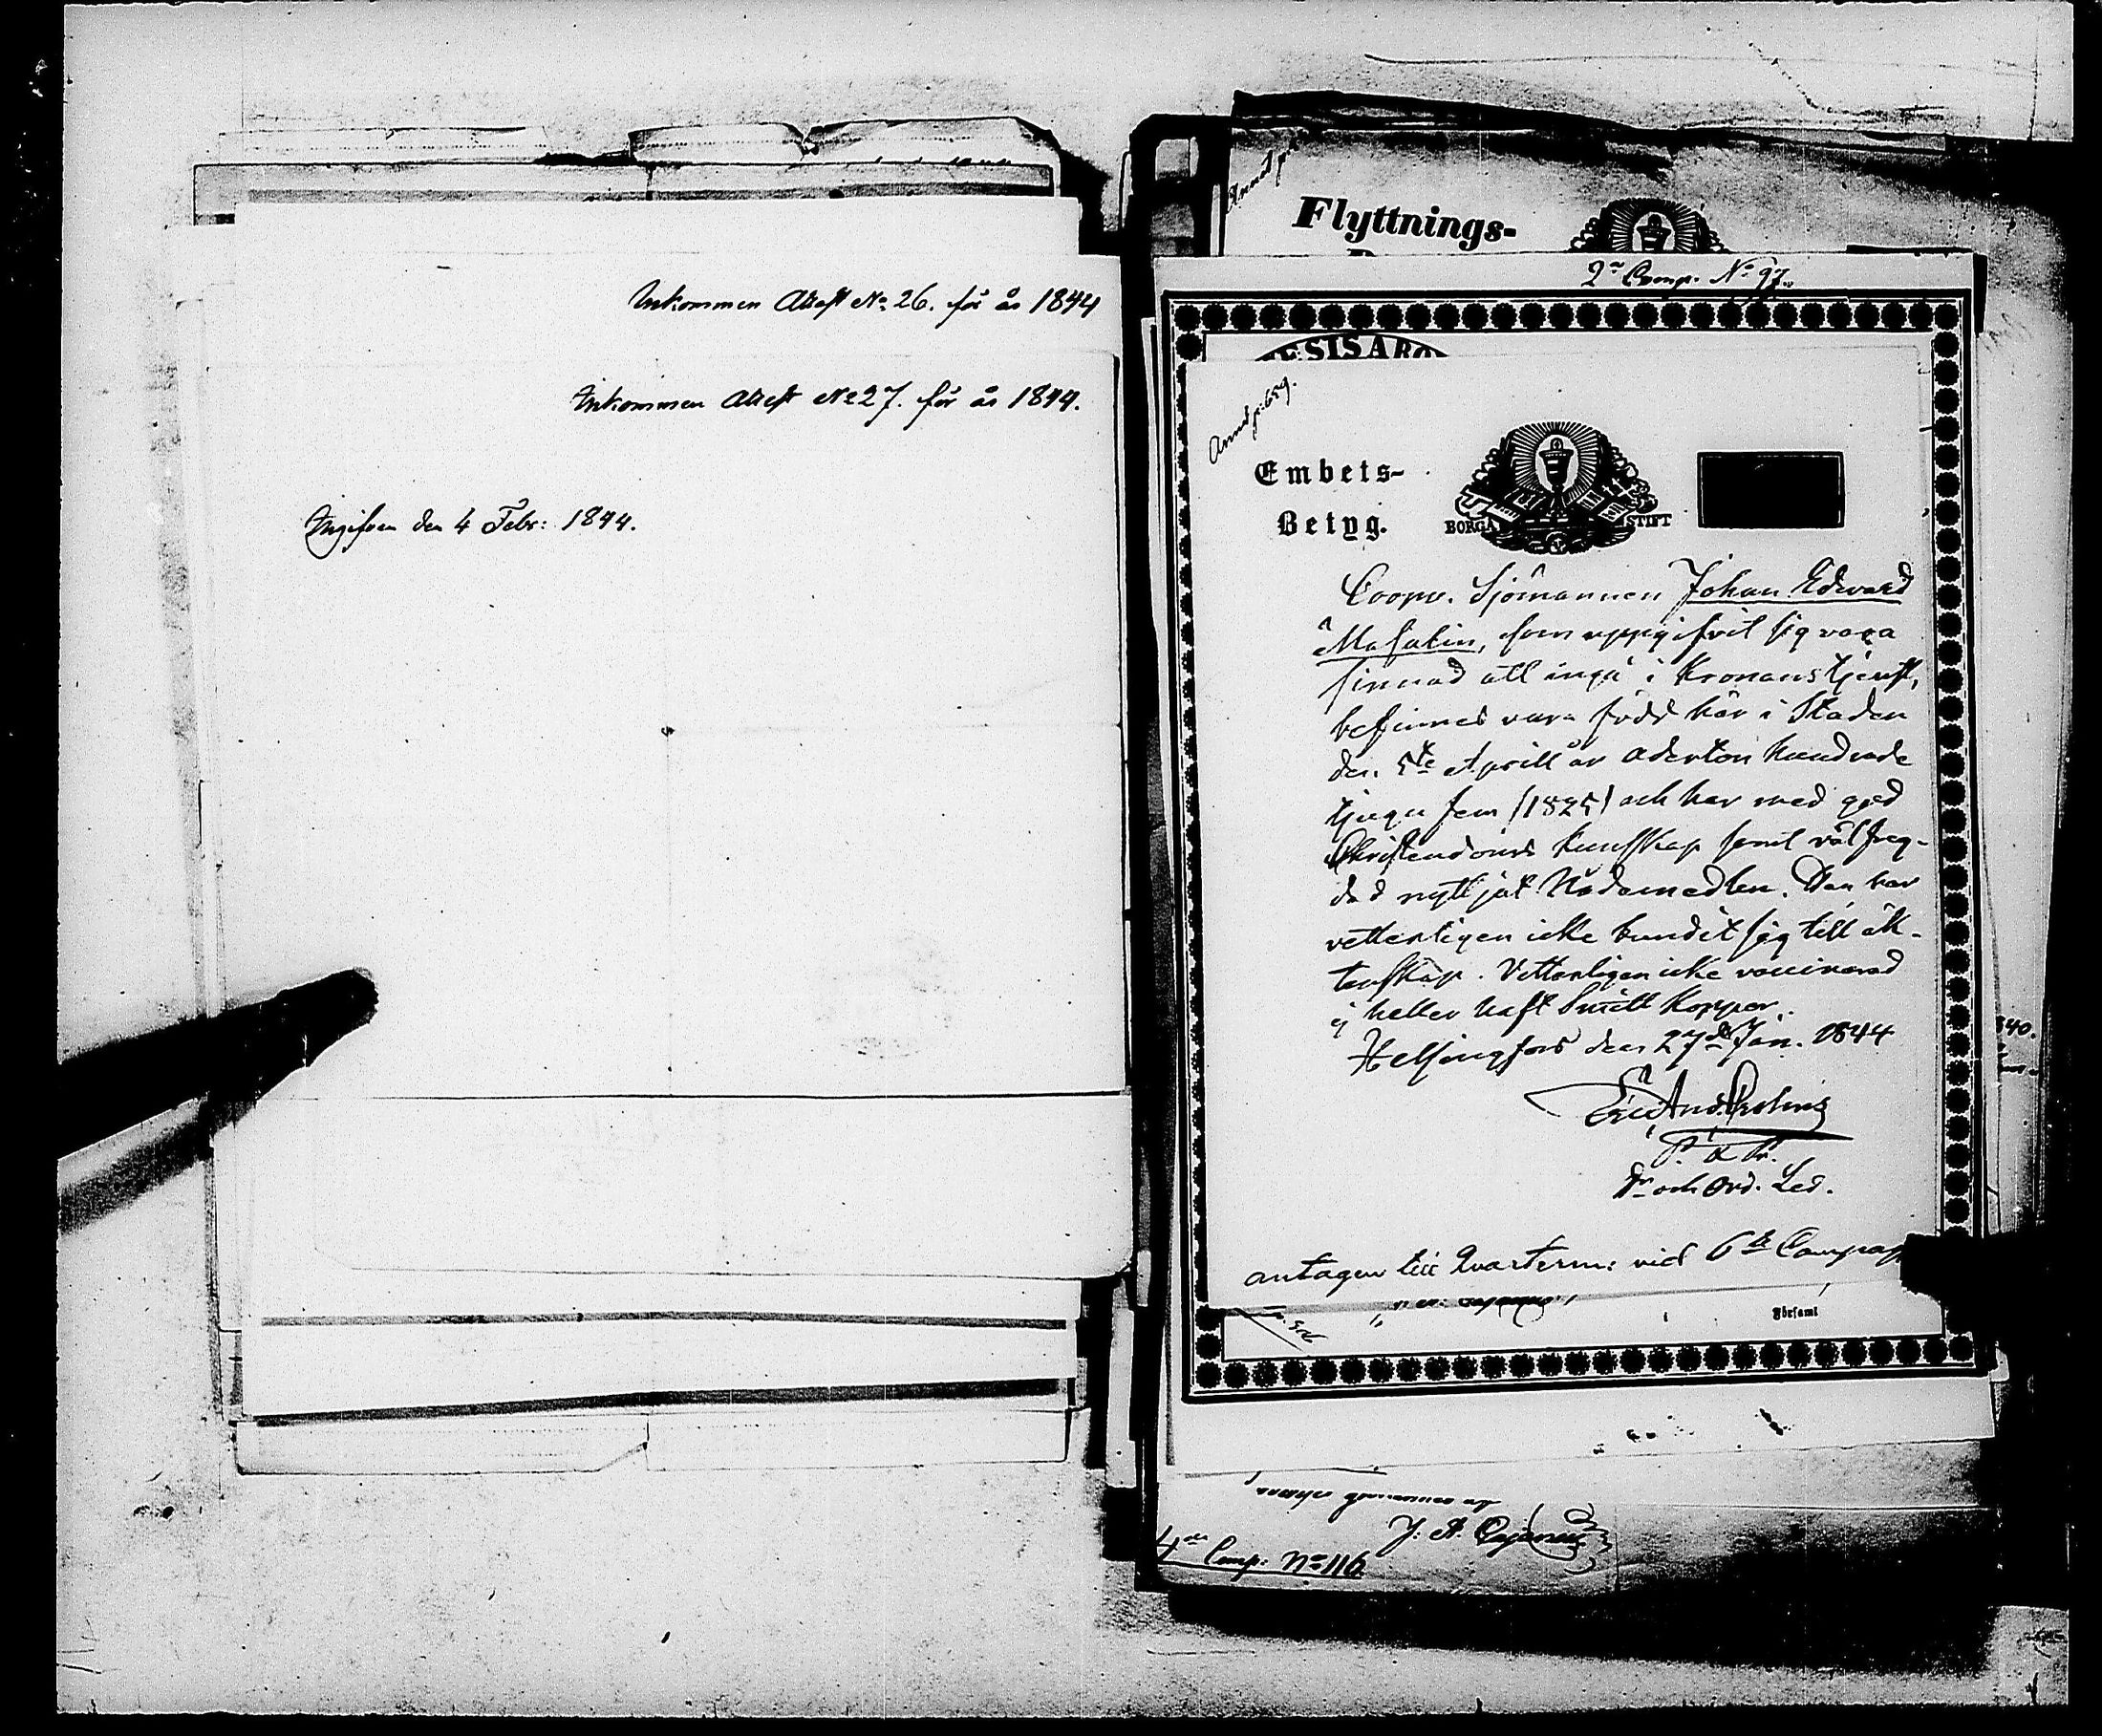 Inkommen Attest No 26. för år 1844
Inkommen Attest No 27. för år 1844.
Ingifven den 4 Febr: 1844.
Flyttnings-
2n Comp. No 97.
Annot p. 659.
Embets-
Betyg.
BORGÅ STIFT
Coopv. Sjömannen Johan Edvard
Masalin, som uppgifvit sig vara
sinnad att ingå i Kronans tjenst,
befinnes vara född här i Staden
den 5te Aprill år adertonhundrade
tjugu fem (1825) och har med god
Christendoms kunskap samt välfreg-
dad nyttjat Nådamedlen. Han har
vetterligen icke bundit sig till äk-
tenskap. Vetterligen icke vaccinerad
ej heller haft Smitt Koppor.
Helsingfors den 27de Jan. 1844
Eric And. Crohns
Dr och Ord. Led.
antagen till Qvarterm: vid 6te Compag
Församl
J. A. Cajanus
4de Comp: No 116